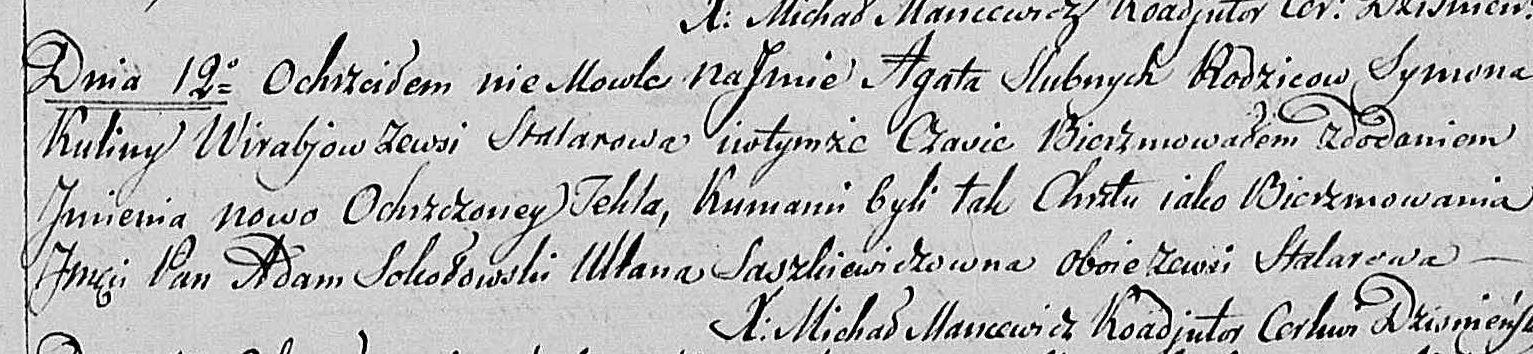 X: Michał Mancewicz Koadjutor Cer: Dzisnień
Dnia 12º Ochrzciłem nie Mowle na Jmie Agata Slubnych Rodzicow Symona
Kuliny Wirabjow zewsi Stalarowa iwtymże Czasie Bierzmowałem zdodaniem
Jmienia nowo Ochrzczoney Tekla, Kumami byli tak Chrztu iako Bierzmowania
Jmci Pan Adam Sokołowski Ullana Saszkiewiczowna oboie zewsi Stalarowa —
X: Michał Mancewicz Koadjutor Cerkwi Dzisnieńs